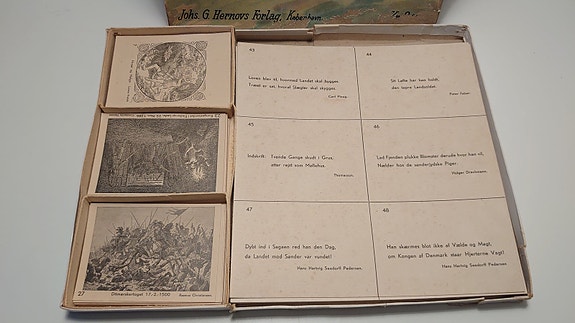 Johs. G. Hernovs Forlag, København.
43
Loven blev til, hvormed Landet skal bygges.
Træet er sat, hvoraf Slægter skal skygges.
Carl Ploug.
44
Sit Løfte har han holdt,
den tapre Landsoldat.
Peter Faber.
45
Indskrift: Trende Gange skudt i Grus,
atter rejst som Møllehus.
46
Lad Fjenden plukke Blomster derude hvor han vil,
Nælder hos de sønderjydske Piger.
Holger Drachmann.
47
Dybt ind i Sagaen red han den Dag,
da Landet mod Sønder var vundet!
Hans Hartvig Seedorff Pedersen.
48
Han skærmes blot ikke af Vælde og Magt,
om Kongen af Danmark staar Hjerterne Vagt!
Hans Hartvig Seedorff Pedersen.
27
Ditmarskertoget 17-2-1500
Rasmus Christiansen.